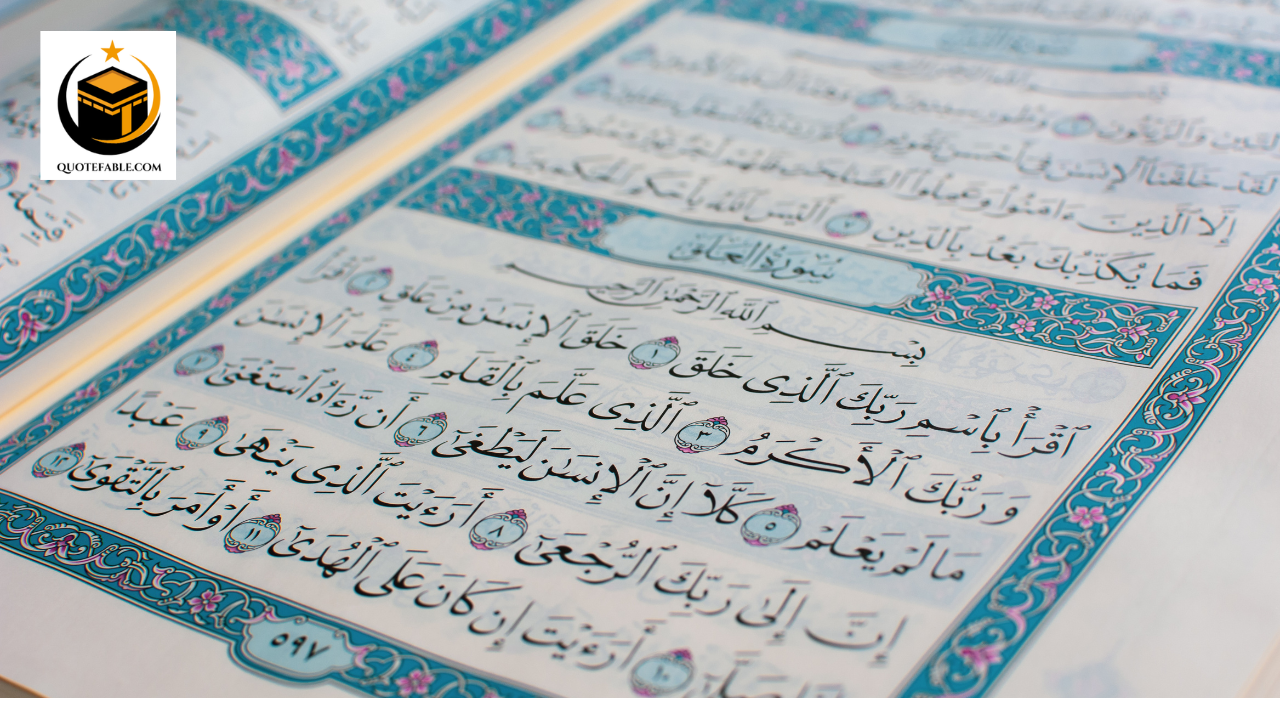 QUOTEFABLE.COM
وَٱلزَّيْتُونِ ١ وَطُورِ سِينِينَ
لَقَدْ خَلَقْنَا ٱلْإِنسَٰنَ فِىٓ أَحْسَنِ تَقْوِيمٍ
إِلَّا ٱلَّذِينَ ءَامَنُوا۟ وَعَمِلُوا۟ ٱلصَّٰلِحَٰتِ فَلَهُمْ أَجْرٌ غَيْرُ مَمْنُونٍ
فَمَا يُكَذِّبُكَ بَعْدُ بِٱلدِّينِ ٧ أَلَيْسَ ٱللَّهُ بِأَحْكَمِ ٱلْحَٰكِمِينَ
سُورَةُ العَلَق
بِسْمِ ٱللَّهِ ٱلرَّحْمَٰنِ ٱلرَّحِيمِ
ٱقْرَأْ بِٱسْمِ رَبِّكَ ٱلَّذِى خَلَقَ ١ خَلَقَ ٱلْإِنسَٰنَ مِنْ عَلَقٍ ٢ ٱقْرَأْ
وَرَبُّكَ ٱلْأَكْرَمُ ٣ ٱلَّذِى عَلَّمَ بِٱلْقَلَمِ ٤ عَلَّمَ ٱلْإِنسَٰنَ
مَا لَمْ يَعْلَمْ ٥ كَلَّآ إِنَّ ٱلْإِنسَٰنَ لَيَطْغَىٰٓ ٦ أَن رَّءَاهُ ٱسْتَغْنَىٰٓ ٧
إِنَّ إِلَىٰ رَبِّكَ ٱلرُّجْعَىٰٓ ٨ أَرَءَيْتَ ٱلَّذِى يَنْهَىٰ ٩ عَبْدًا
صَلَّىٰٓ ١٠ أَرَءَيْتَ إِن كَانَ عَلَى ٱلْهُدَىٰٓ ١١ أَوْ أَمَرَ بِٱلتَّقْوَىٰٓ ١٢
٥٩٧